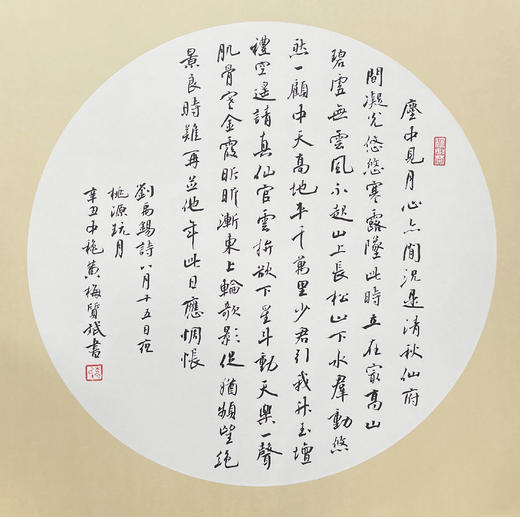 塵中見月心亦閒況是清秋仙府
間凝光悠悠寒露墜此時立在冣高山
碧虛無雲風不起山上長松山下水群動悠
然一顧中天高地平千萬里少君引我升玉壇
禮空遙請真仙官雲軿欲下星斗動天樂一聲
肌骨寒金霞昕昕漸東上輪欹影促猶頻望絕
景良時難再並他年此日應惆悵
劉禹錫詩八月十五日夜
桃源玩月
辛丑中穐黃梅書